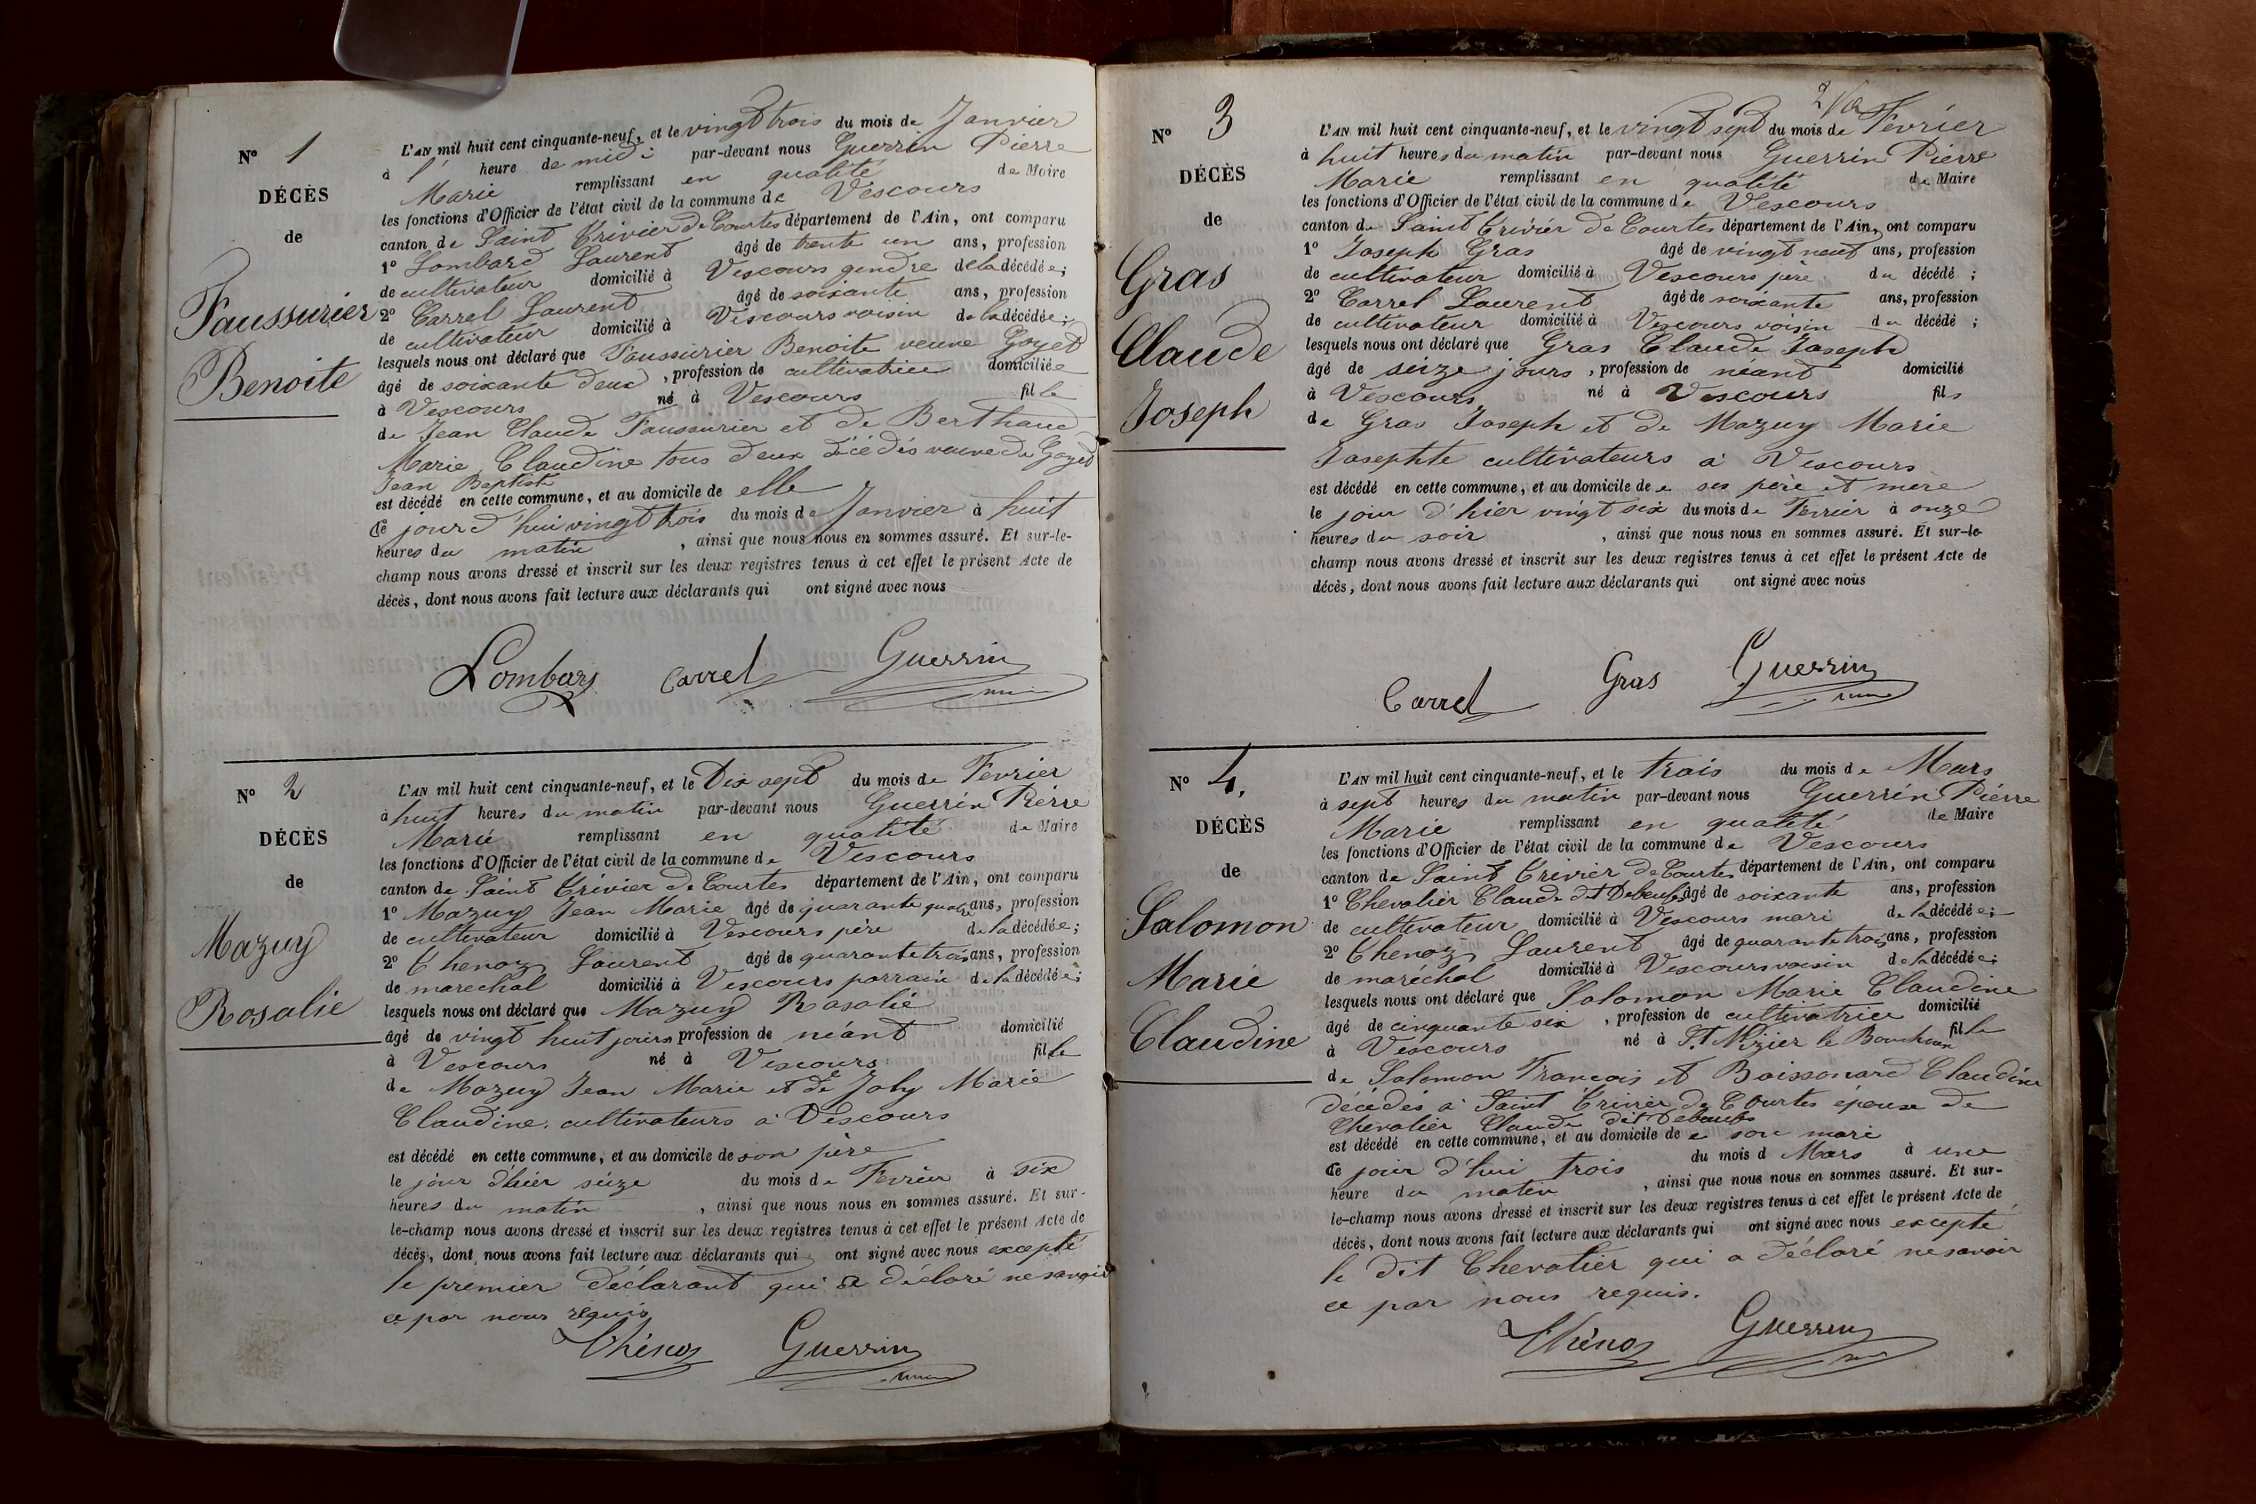 N° 1
DÉCÈS
de
Faussurier
Benoite
L'AN mil huit cent cinquante-neuf, et le vingt trois du mois de Janvier
à 1' heure de midi par-devant nous Guerrin Pierre
Marie remplissant en qualité de Maire
les fonctions d'Officier de l'état civil de la commune de Vescours
canton de Saint Trivier de Courtes département de l'Ain, ont comparu
1° Lombard Laurent âgé de trente un ans, profession
de cultivateur domicilié à Vescours gendre de la décédée;
2° Carrel Laurent âgé de soixante ans, profession
de cultivateur domicilié à Vescours voisin de la décédée;
lesquels nous ont déclaré que Faussurier Benoite veuve Goyet
âgé de soixante deux, profession de cultivatrice domiciliée
à Vescours né à Vescours fille
de Jean Claude Faussurier et de Berthaud
Marie Claudine tous deux décédés veuve de Goyet
Jean Baptiste
est décédé en cette commune, et au domicile de elle
Ce jourd'hui vingt trois du mois de Janvier à huit
heures du matin, ainsi que nous nous en sommes assuré. Et sur-le-
champ nous avons dressé et inscrit sur les deux registres tenus à cet effet le présent Acte de
décès, dont nous avons fait lecture aux déclarants qui ont signé avec nous
Lombard Carrel Guerrin
N° 2
DÉCÈS
de
Mazuy
Rosalie
L'AN mil huit cent cinquante-neuf, et le Dix sept du mois de Fevrier
à huit heures du matin par-devant nous Guerrin Pierre
Marie remplissant en qualité de Maire
les fonctions d'Officier de l'état civil de la commune de Vescours
canton de Saint Trivier de Courtes département de l'Ain, ont comparu
1° Mazuy Jean Marie âgé de quarante quatre ans, profession
de cultivateur domicilié à Vescours père de la décédée;
2° Thenoz Laurent âgé de quarante trois ans, profession
de marechal domicilié à Vescours parrain de la décédée;
lesquels nous ont déclaré que Mazuy Rosalie
âgé de vingt huit jours profession de néant domicilié
à Vescours né à Vescours fille
de Mazuy Jean Marie et de Joly Marie
Claudine, cultivateurs à Vescours
est décédé en cette commune, et au domicile de son père
le jour d'hier séize du mois de Fevrier à six
heures du matin, ainsi que nous nous en sommes assuré. Et sur-
le-champ nous avons dressé et inscrit sur les deux registres tenus à cet effet le présent Acte de
décès, dont nous avons fait lecture aux déclarants qui ont signé avec nous excepté
le premier déclarant qui a déclaré ne savoir
ce par nous requis
Thénoz Guerrin
N° 3
DÉCÈS
de
Gras
Claude
Joseph
L'AN mil huit cent cinquante-neuf, et le vingt sept du mois de Fevrier
à huit heures du matin par-devant nous Guerrin Pierre
Marie remplissant en qualité de Maire
les fonctions d'Officier de l'état civil de la commune de Vescours
canton de Saint Trivier de Courtes département de l'Ain, ont comparu
1° Joseph Gras âgé de vingt neuf ans, profession
de cultivateur domicilié à Vescours père du décédé;
2° Carrel Laurent âgé de soixante ans, profession
de cultivateur domicilié à Vescours voisin du décédé;
lesquels nous ont déclaré que Gras Claude Joseph
âgé de séize jours, profession de néant domicilié
à Vescours né à Vescours fils
de Gras Joseph et de Mazuy Marie
Josephte cultivateurs à Vescours
est décédé en cette commune, et au domicile de ses père et mere
le jour d'hier vingt six du mois de Fevrier à onze
heures du soir, ainsi que nous nous en sommes assuré. Et sur-le-
champ nous avons dressé et inscrit sur les deux registres tenus à cet effet le présent Acte de
décès, dont nous avons fait lecture aux déclarants qui ont signé avec nous
Carrel Gras Guerrin
N° 4,
DÉCÈS
de
Salomon
Marie
Claudine
L'AN mil huit cent cinquante-neuf, et le trois du mois de Mars
à sept heures du matin par-devant nous Guerrin Pierre
Marie remplissant en qualité de Maire
les fonctions d'Officier de l'état civil de la commune de Vescours
canton de Saint Trivier de Courtes département de l'Ain, ont comparu
1° Chevalier Claude dit Debeuf âgé de soixante ans, profession
de cultivateur domicilié à Vescours mari de la décédée;
2° Thenoz Laurent âgé de quarante trois ans, profession
de maréchal domicilié à Vescours voisin de la décédée;
lesquels nous ont déclaré que Salomon Marie Claudine
âgé de cinquante six, profession de cultivatrice domicilié
à Vescours né à St Nizier le Bouchoux fille
de Salomon François et Boissonard Claudine
décédés à Saint Trivier de Courtes épouse de
Chevalier Claude dit Debeuf
est décédé en cette commune, et au domicile de son mari
Ce jour d'hui trois du mois d Mars à une
heure du matin, ainsi que nous nous en sommes assuré. Et sur-
le-champ nous avons dressé et inscrit sur les deux registres tenus à cet effet le présent Acte de
décès, dont nous avons fait lecture aux déclarants qui ont signé avec nous excepté
le dit Chevalier qui a déclaré ne savoir
ce par nous requis.
Thénoz Guerrin